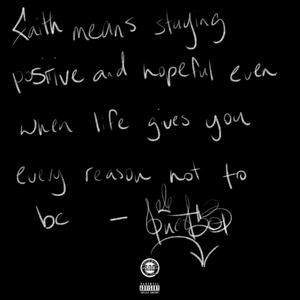 Faith means staying
positive and hopeful even
when life gives you
every reason not to
be -
PARENTAL
ADVISORY
EXPLICIT CONTENT